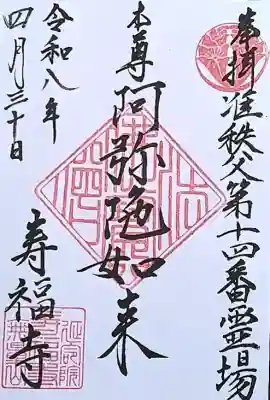 奉拝
准秩父第十四番霊場
本尊
阿弥陀如来
寿福寺
令和八年
四月三十日